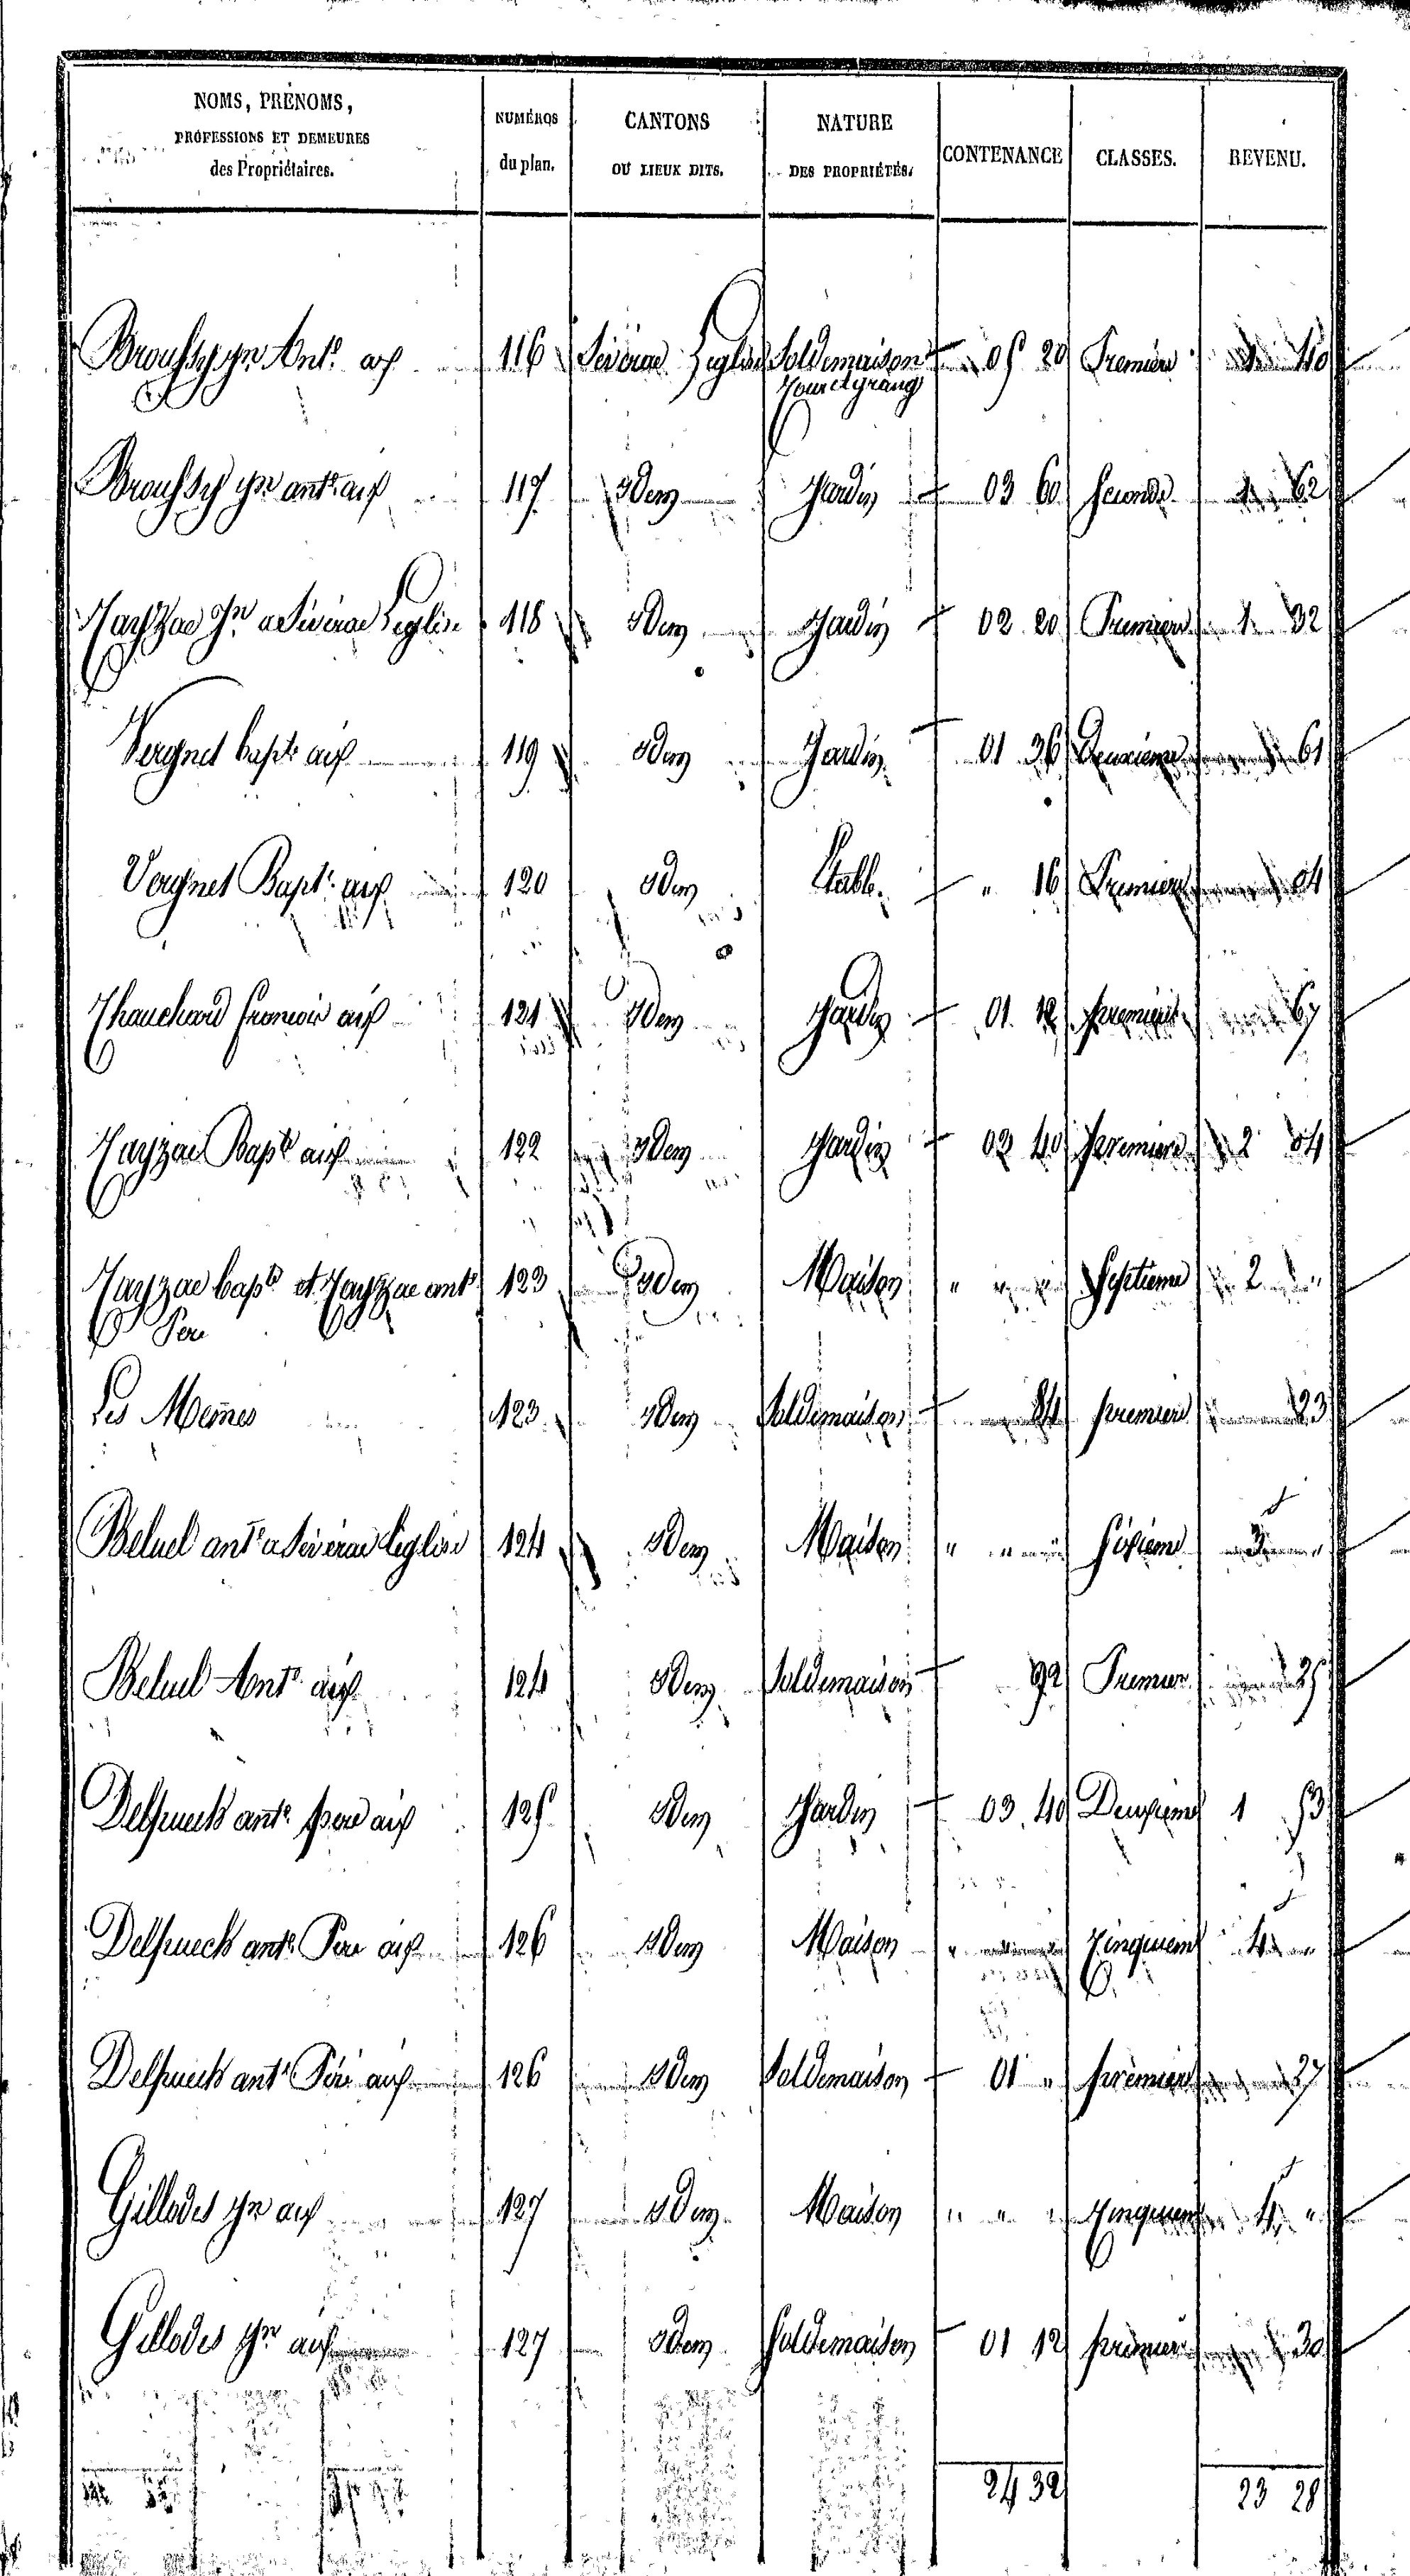 NOMS, PRÉNOMS, PROFESSIONS ET DEMEURES des Propriétaires. NUMÉROS du plan. CANTONS OU LIEUX DITS. NATURE DES PROPRIÉTÉS. CONTENANCE CLASSES. REVENU.
116 Séverac Leglise Sol de maison 05 20 Premiere 1 40
117 Idem Jardin 03 60 Seconde 1 62
Jn a Séverac Leglise 118 Idem Jardin 02 20 Premiere 1 32
Vergnet Bapte 119 Idem Jardin 01 36 Deuxieme 61
Vergnet Bapt. 120 Idem Etable 16 Premiere 04
francois 121 Idem Jardin 01 12 premiere 67
Bapte 122 Idem Jardin 02 40 premiere 2 04
Bapte et ante Pere 123 Idem Maison " " " Septieme 2 "
Les Memes 123 Idem Sol de maison 84 premiere 23
Beluel ante a Séverac Leglise 124 Idem Maison " " " Sixieme 3 "
Beluel Ante 124 Idem Sol de maison 92 Premiere 25
ante pere 125 Idem Jardin 03 40 Deuxieme 1 53
ante Pere 126 Idem Maison " Cinquieme 4 "
ante Pere 126 Idem Sol de maison 01 " premiere 27
Gillodes Jn 127 Idem Maison " " " Cinquieme 4 "
Gillodes Jn 127 Idem Sol de maison 01 12 premiere 30
24 32 23 28